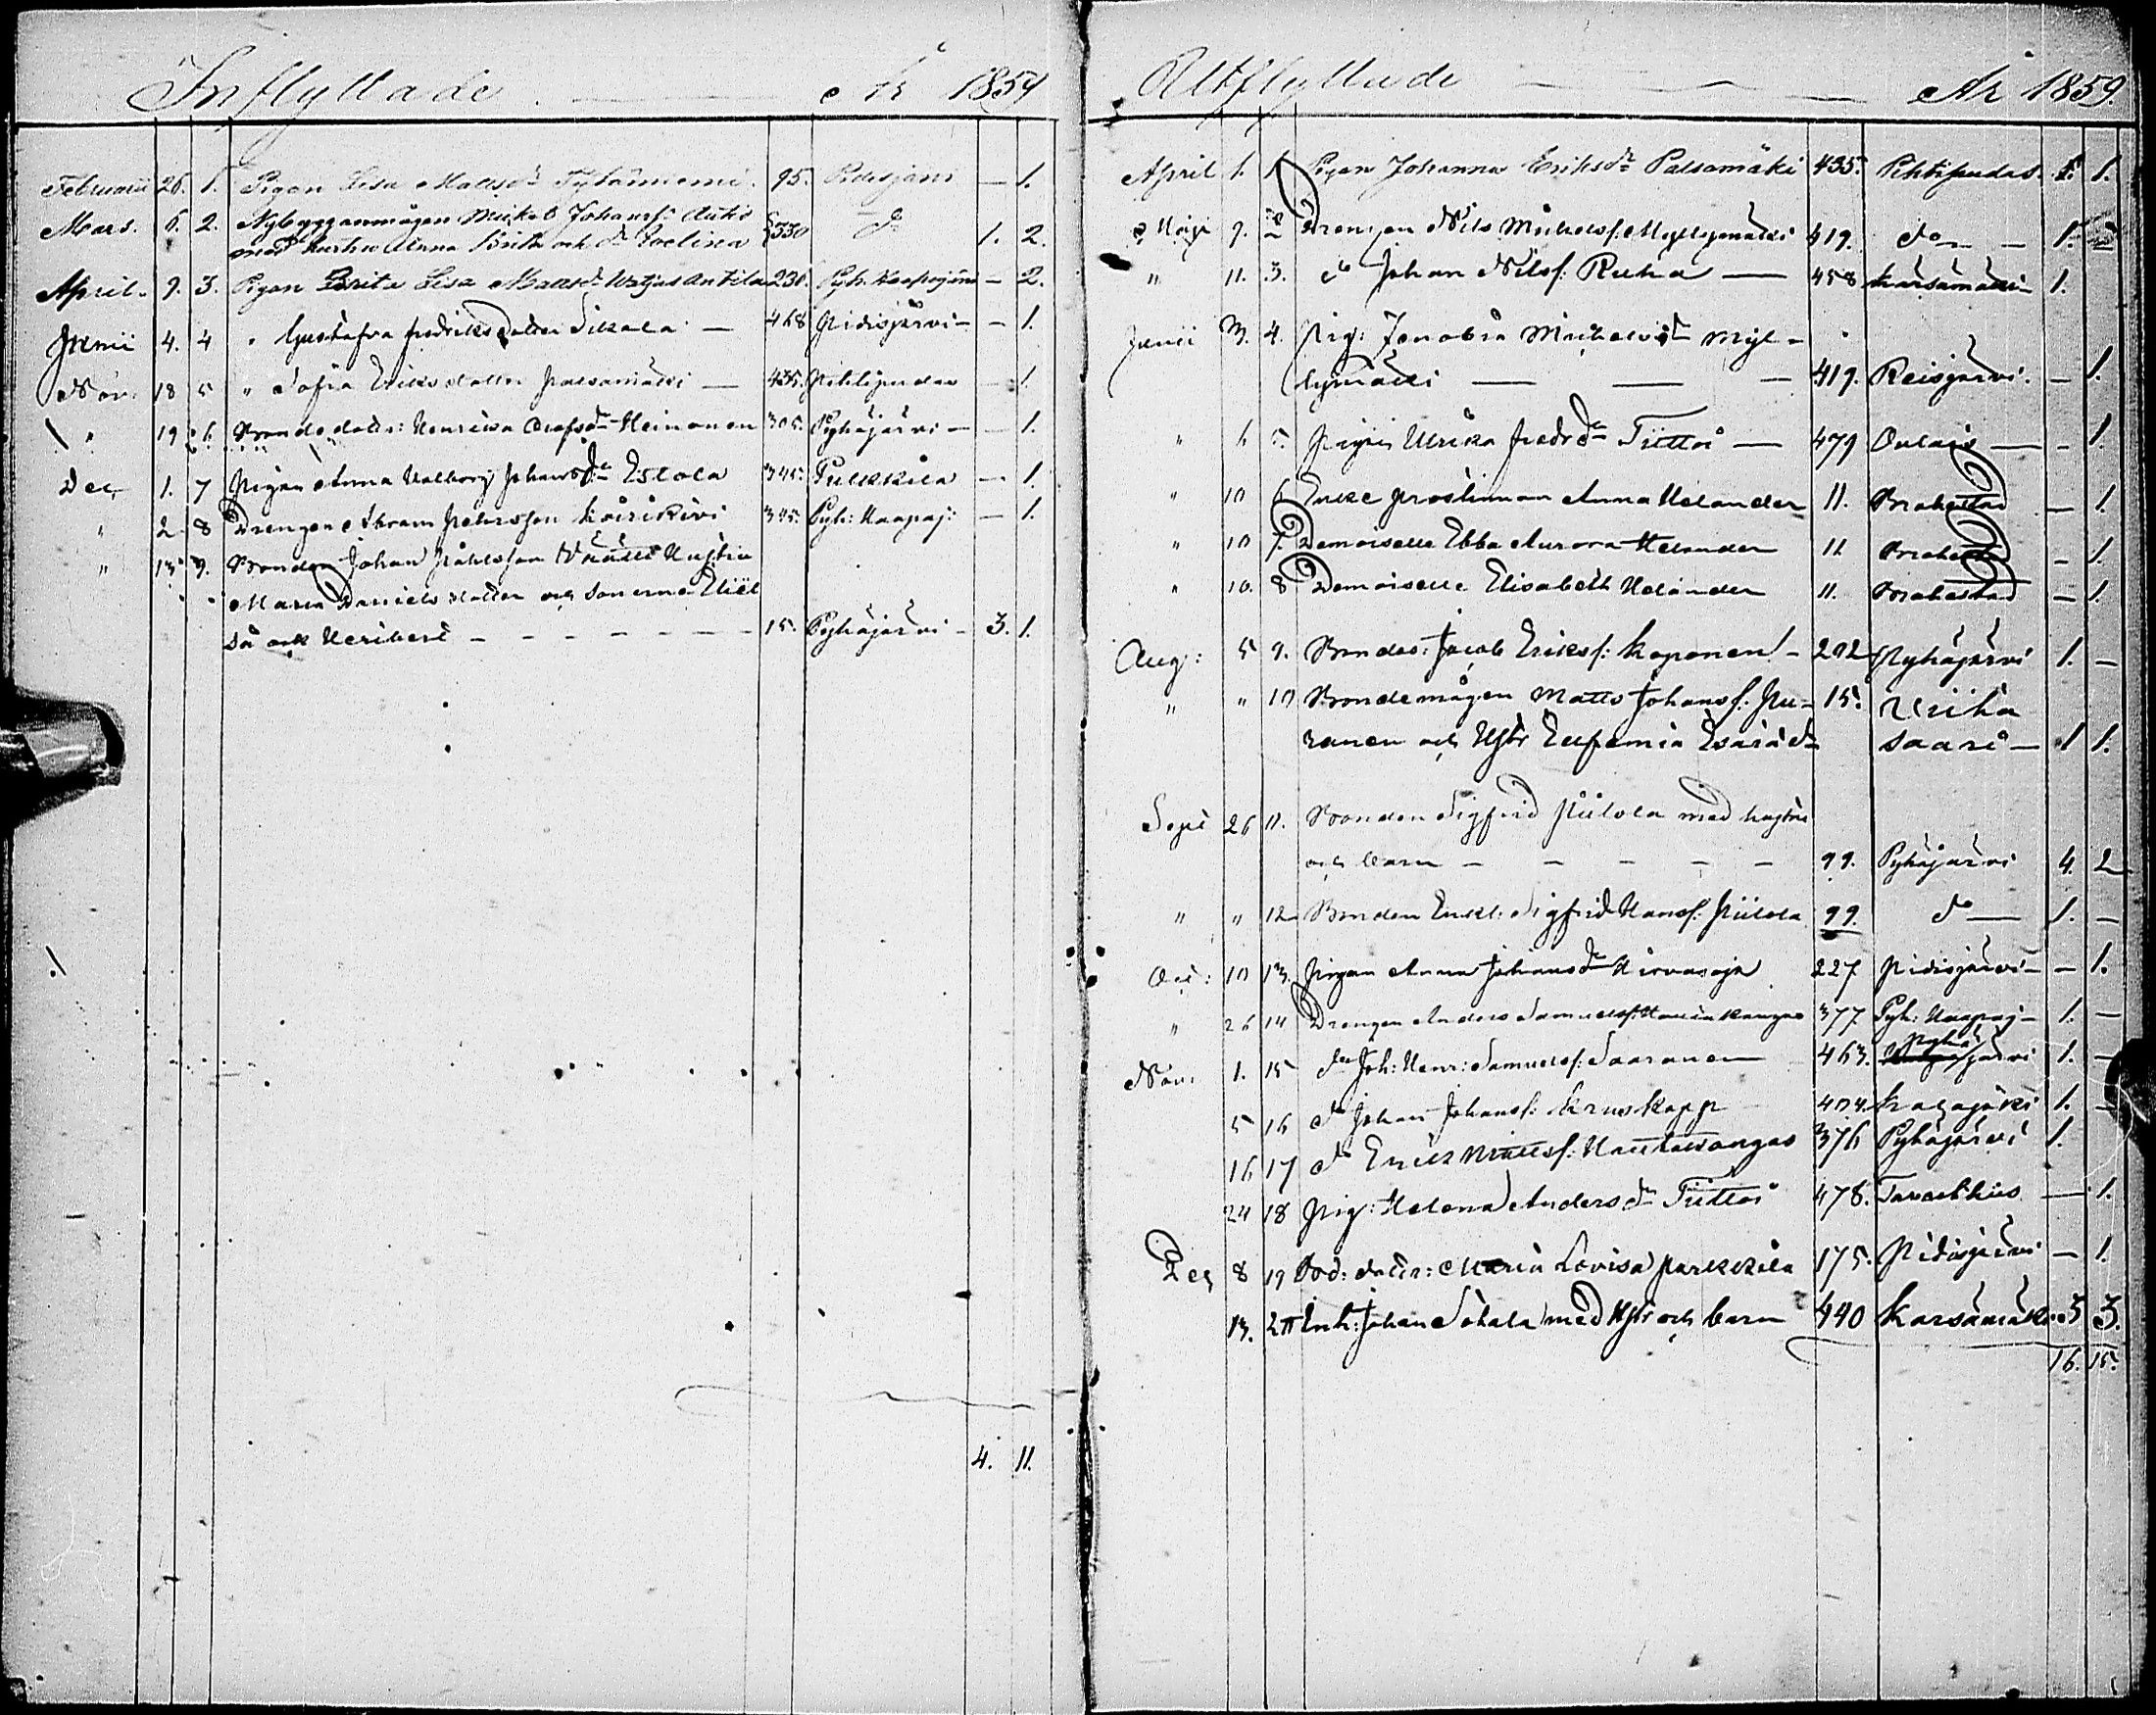 Inflyttade År 1859
Februarii 26. 1. Pigan Lisa Mattsdr 95. Reisjärvi — 1.
Mars. 6. 2. Nybyggaremågen Mickel Johansf: Autio
med hustru Anna Brita och dr Evelina 330 do 1. 2.
April. 9. 3. Pigan Brita Lisa Mattsdr Antila 230. Pyh. Haapajärvi — 2.
Junii 4. 4 " Gustafva Fredriksdotter Sikala — 468 Pidisjärvi — — 1.
Nov. 18 5 " Sofia Eriksdotter Palsamäki — 435. Pihtipudas — 1.
" 19 6. Bondedottr: Henrica Olofsdr Heinonen 305. Pyhäjärvi — — 1.
Dec. 1. 7 Pigan Anna Valborg Johansdr Eskola 345. Pulkkila — 1.
" 2 8 Drengen Abram Petersson Käiräkivi 345. Pyh: Haapaj: — 1.
" 13. 9. Bonden Johan Påhlsson Hustru
Maria Danielsdotter och sönerne Eliel
sa och Heribert — — — — — — 15. Pyhäjärvi — 3. 1.
4. 11.
Utflyttade År 1859.
April 1. 1 Pigan Johanna Eriksdr Palsamäki 435. Pihtipudas. 1.
Maji 9. 2 Drengen Nils Michelsf: Myllymäki 419. do — 1.
" 11. 3. do Johan Nilsf: Ruha — 458 Kärsämäki — 1.
Junii 3. 4. Pig: Zenobia Michelsdr Myl-
lymäki — — — 419. Reisjärvi. — 1.
" 6 5. Pigan Ulrika Fredrdr Tiittoi — 479 Oulais — — 1.
" 10 6 Enke prostinnan Anna Helander 11. Brahestad — 1.
" 10 7. Demoiselle Ebba Aurora Helander 11 Brahestad — 1.
" 10. 8 Demoiselle Elisabeth Helander 11. Brahestad — 1.
Aug: 5 9. Bondes: Jacob Eriksf: Koponen — 202 Pyhäjärvi 1. —
" " 10 Bondemågen Matts Johansf. Pu- 15. Viita
ranen och Hstr Eufemia Esaiædr saari — 1 1.
Sept 26 11. Bonden Sigfrid Piilola med hustru
och barn — — — — — 99. Pyhäjärvi 4. 2
" " 12 Bonden Enkl: Sigfrid Hansf. Piilola 99. do — 1. —
Oct: 10 13. Pigan Anna Johansdr Hirvasoja 227 Pidisjärvi — — 1.
" 26 14 Drengen Anders Samuelsf: Hautakangas 377 Pyh: Haapaj — 1. —
Nov: 1. 15 do Joh: Henr: Samuelsf: Saaranen 463. Pyhäjärvi 1. —
5 16 do Johan Johansf: Kruskopp 404. Kalajoki 1. —
16 17 do Erik Mattsf: Hautakangas 376 Pyhäjärvi 1.
24 18 Pig: Helena Andersdr Tiittoi 478. Tavasthus — 1.
Dec 8 19 Bod: dottr: Maria Lovisa Parkkila 175. Pidisjärvi — 1.
13. 20 Inh: Johan Sokala med Hstr och barn 440 Kärsämäki. 3 3.
16. 15.